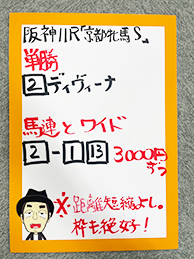 阪神11R「京都牝馬S」
単勝
2 ディヴィーナ
馬連とワイド
2-1 13 3000円ずつ
※距離短縮よし。
枠も絶好!